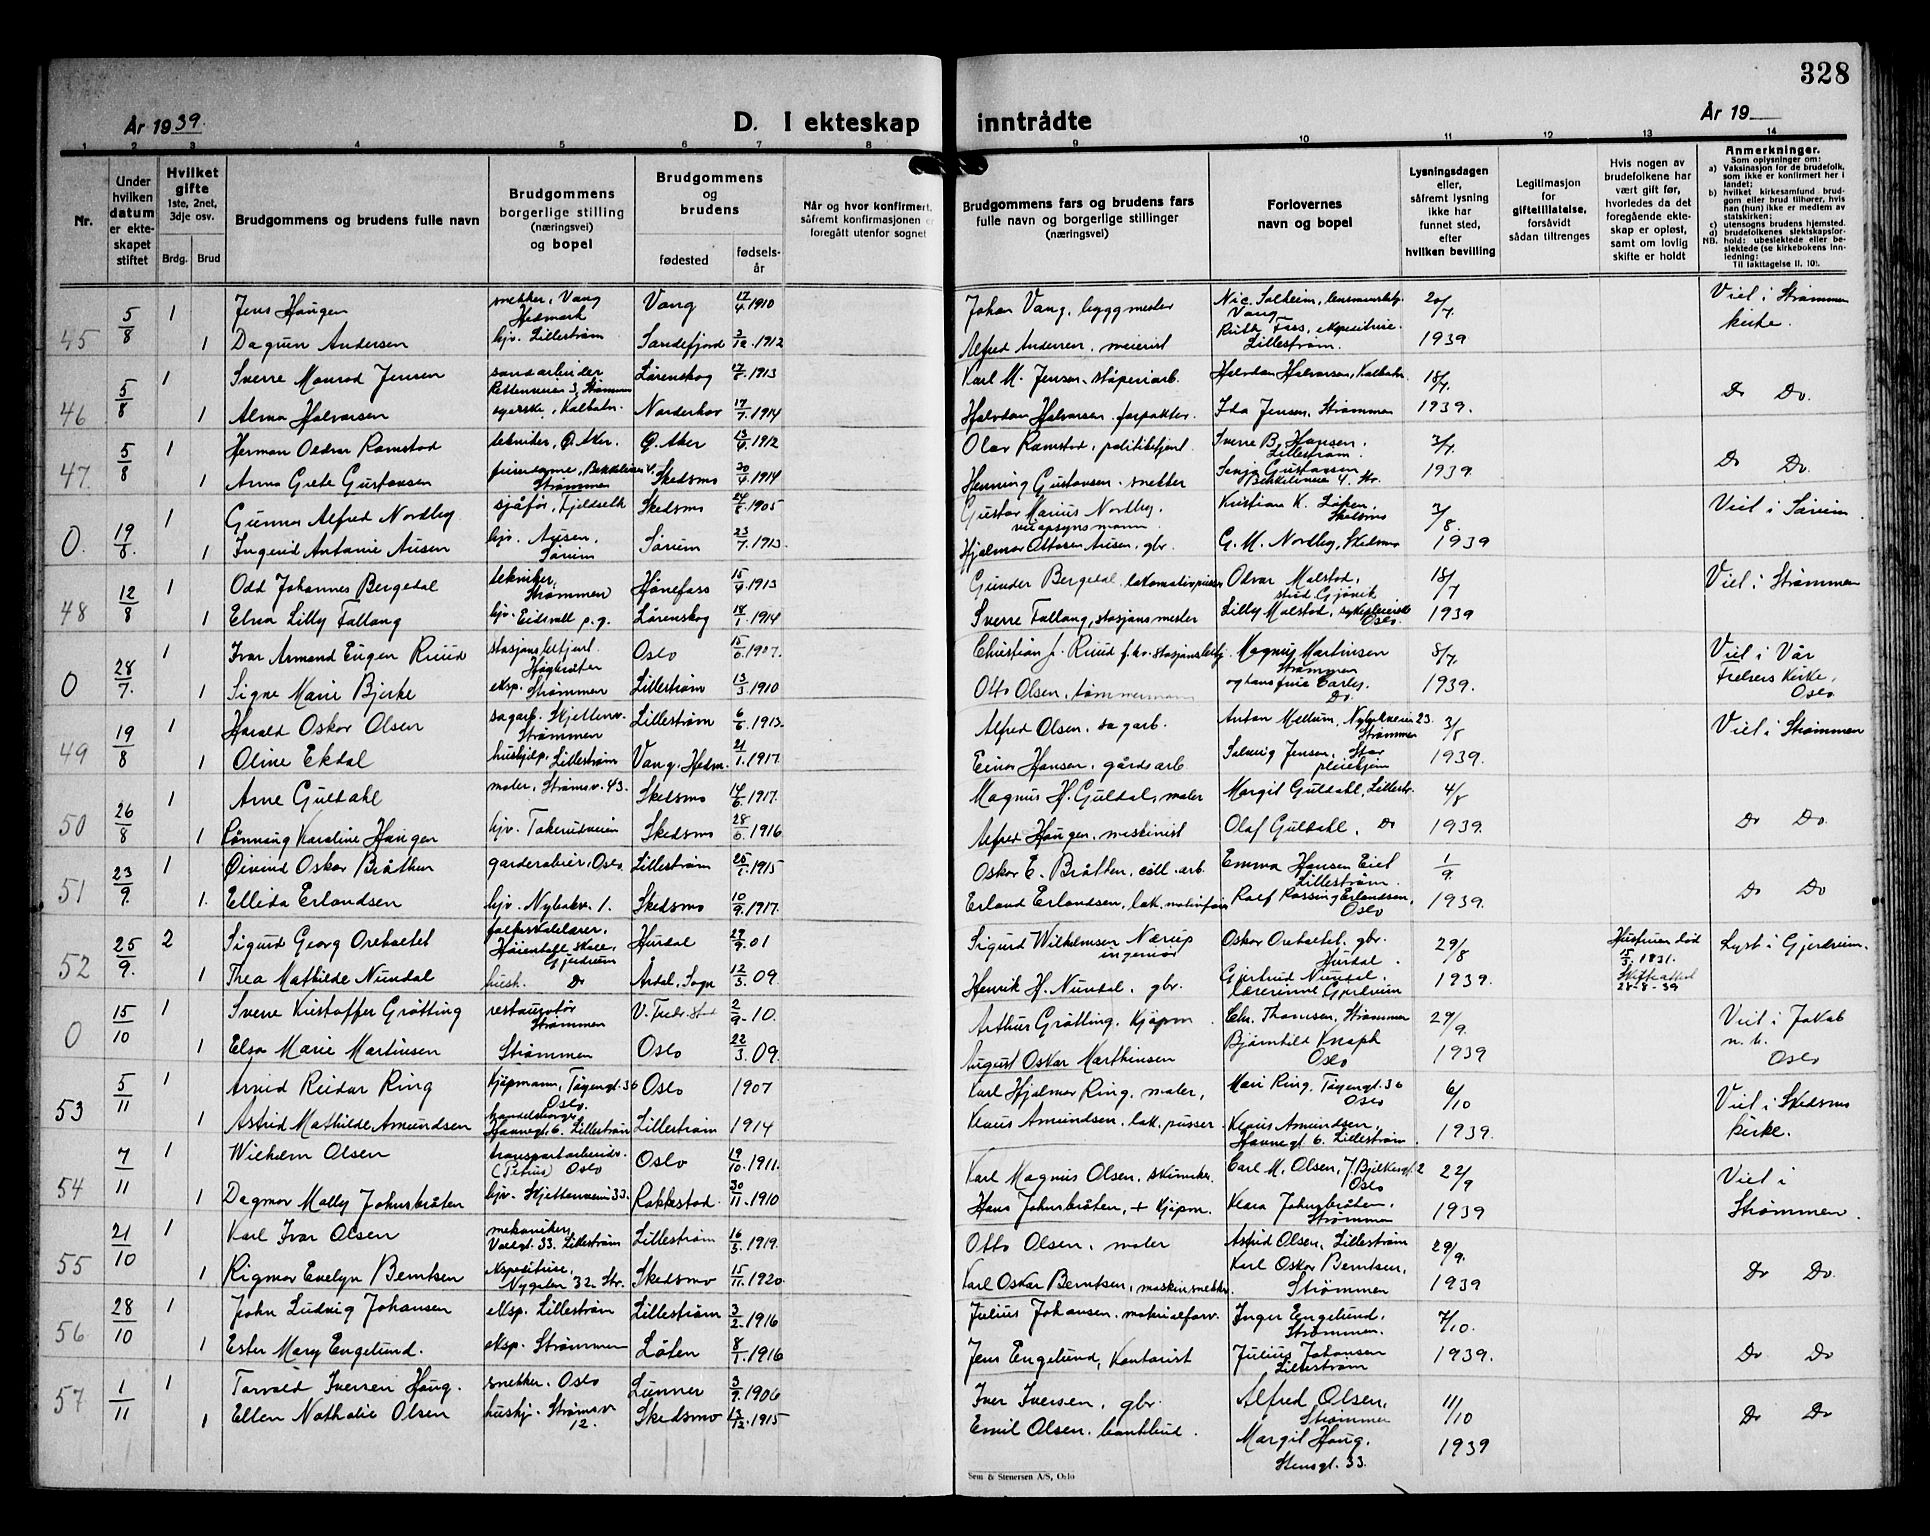 328
År 1939.
D. I ekteskap inntrådte
År 19
1 2 3 4 5 6 7 8 9 10 11 12 13 14
Nr.
Under hvilken datum er ekteskapet stiftet
Hvilket gifte
1ste, 2net, 3dje osv.
Brdg. Brud
Brudgommens og brudens fulle navn
Brudgommens borgerlige stilling (næringsvei) og bopel
Brudgommens og brudens
fødested
fødselsår
Når og hvor konfirmert, såfremt konfirmasjonen er foregått utenfor sognet
Brudgommens fars og brudens fars fulle navn og borgerlige stillinger (næringsvei)
Forlovernes navn og bopel
Lysningsdagen eller, såfremt lysning ikke har funnet sted, efter hvilken bevilling
Legitimasjon for giftetillatelse, forsåvidt sådan tiltrenges
Hvis nogen av brudefolkene har vært gift før, hvorledes da det foregående ekteskap er opløst, samt om lovlig skifte er holdt
Anmerkninger.
Som oplysninger om:
a) Vaksinasjon for de brudefolk, som ikke er konfirmert her i landet;
b) hvilket kirkesamfund brudgom eller brud tilhører, hvis han (hun) ikke er medlem av statskirken;
c) utensogns brudens hjemsted.
d) brudefolkenes slektskapsforhold: ubeslektede eller beslektede (se kirkebokens innledning:
NB. Til iakttagelse II. 10).
45 5/8 1 Jens Haugen snekker, Vang Hedmark Vang 17/4 1910 Johan Vang, byggmester Nic. Solheim, lensmannsbetj. Vang 20/7 1939 Viet i Strømmen kirke.
1 Dagrun Andersen hjv. Lillestrøm Sandefjord 1912 Alfred Andersen, meierist Ruth Foss, ekspeditrise. Lillestrøm.
46 5/8 1 Sverre Monrad Jensen Strømmen Lørenskog 1913 Karl M. Jensen, støperiarb. Halvdan Halvorsen, Kalbakn. 18/7 1939. Do Do.
1 Alma Halvorsen syerske, Kalbakn. Norderhov 17/7 1914 Halvdan Halvorsen, forpakter. Ida Jensen, Strømmen
47. 5/8 1 Herman Oldvar Ramstad tekniker, Ø. Aker. Ø. Aker 13/4 1912 Olav Ramstad, politibetjent Sverre B. Hansen. Lillestrøm. 3/7 1939. Do Do.
1 Anna Grete Gustavsen Strømmen Skedsmo 20/4 1914 Henning Gustavsen, snekker Sonja Gustavsen
0. 19/8. 1 Gunnar Alfred Nordby sjåfør, Fjeldseth Skedsmo 1905 Gustav Marius Nordby, veiopsynsmann. Kristian K. Løken, Skedsmo 3/8. 1939 Viet i Sørum.
1 Ingerid Antonie Ausen hjv. Ausen, Sørum Sørum 23/7 1913. Hjalmar Ottosen Ausen, gbr. G. M. Nordby, Skedsmo
48 12/8 1 Odd Johannes Bergedal tekniker, Strømmen Hønefoss 15/4 1913 Gunder Bergedal, lokomotivpusser Odvar Malstad, stud Gjøvik 18/7 1939 Viet i Strømmen
1 Elna Lilly Fallang hjv. Eidsvoll p.g. Lørenskog 14/1 1914 Sverre Fallang, stasjonsmester Lilly Malstad, sykepleierske Oslo.
0 28/7. 1 Ivar Armand Eugen Ruud stasjonsbetjent. Høybråten Oslo 1907. Christian J. Ruud f.hv. stasjonsbetj. Magnus Martinsen Strømmen 8/7. 1939. Viet i Vår Frelsers Kirke, Oslo
1 Signe Marie Bjerke eksp. Strømmen Lillestrøm 13/3 1910 Otto Olsen, tømmermann og hans frue Do.
49 19/8 1 Harald Oskar Olsen sagarb. Skjettenv. Strømmen Lillestrøm 6/6 1913. Alfred Olsen, sagarb. Anton Mellum, 23. Strømmen 3/8 1939. Viet i Strømmen
1 Oline Ekdal hushjelp, Lillestrøm Vang, Hedm. 21/1 1917. Einar Hansen, gårdsarb. Solveig Jensen, pleiehjem
50 26/8 1 Arne Guldahl maler, Strømsv. 43. Skedsmo 14/6 1917. Magnus H. Guldal, maler Margit Guldahl, Lillestr. 4/8 1939. Do Do.
1 Rønnaug Karoline Haugen hjv. Skedsmo 1916 Alfred Haugen, maskinist Olaf Guldahl, Do
51 23/9. 1 Øivind Oskar Bråthen garderobier, Oslo Lillestrøm 25/7 1915 Oskar E. Bråtten, cell. arb. Emma Hansen Eiet Lillestrøm. 1/9. 1939. Do Do
1. Ellida Erlandsen hjv. Nybakv. 1. Skedsmo 10/9 1917. Erland Erlandsen, lok. Rolf Rossing Erlandsen, Oslo
52 25/9. 2 Sigurd Georg Oretoetet Gjerdrum Hurdal 01 Sigurd Wilhelmsen Nærup ingeniør Oskar Oretoetet, gbr. Hurdal 29/8 1939. Hustruen død 15/3 1931. Skifteattest 28-8-39 Lyst i Gjerdrum.
1 Thea Mathilde Nundal hush. Do Årdal, Sogn 12/3 09. Henrik H. Nundal, gbr. Gjertrud Nundal, lærerinne Gjerdrum
0 15/10 1 Sverre Kristoffer Grøtting restauratør Strømmen V. 2/9-10. Arthur Grøtting, Kjøpm. Chr. Thomesen, Strømmen 29/9. 1939 Viet i Jakob Oslo
1 Elsa Marie Martinsen Strømmen Oslo 22/3. 09. August Oskar Marthinsen Bjørnhild Knaph Oslo
53 5/11 1 Arvid Reidar Ring Kjøpmann, Tøyengt. 36 Oslo. Oslo 1907 Karl Hjalmar Ring, maler, Mari Ring. Tøyengt. 36 Oslo 6/10 1939. Viet i Skedsmo kirke.
1 Astrid Mathilde Amundsen Havnegt. 6. Lillestrøm Lillestrøm 1914 Klaus Amundsen, lok. pusser. Klaus Amundsen, Havnegt 6. Lillestrøm.
54 7/11 1 Wilhelm Olsen transportarbeider. (Petrus) Oslo Oslo 19/10. 1911. Karl Magnus Olsen, Carl M. Olsen, Oslo 22/9 1939 Viet i Strømmen.
1 Dagmar Molly Johnsbråten hjv. Skjettenveien 33. Rakkestad. 30/11. 1910 Hans Johnsbråten, + Kjøpm. Klara Johnsbråten, Strømmen
55 21/10 1 Karl Ivar Olsen mekaniker, Vollgt. 33. Lillestrøm Lillestrøm 16/5. 1919. Otto Olsen, maler Astrid Olsen, Lillestrøm 29/9. 1939 Do Do.
1 Rigmor Evelyn Berntsen ekspeditrise, 32. Str. Skedsmo 15/11. 1920 Karl Oskar Berntsen, maskinsnekker. Karl Oskar Berntsen, Strømmen
56 28/10 1 John Ludvig Johansen eksp. Lillestrøm Lillestrøm 3/2. 1916 Julius Johansen, materialforv. Inger Engelund, Strømmen. 7/10. 1939. Do Do
1 Ester Mary Engelund. eksp. Strømmen Løten 8/1. 1916 Jens Engelund, Kontorist Julius Johansen Lillestrøm
57 1/11 1 Torvald Iversen Haug. snekker. Oslo Lunner 3/9. 1906 Iver Iversen, gbr. Alfred Olsen, Strømmen 11/10 1939 Do Do
1 Ellen Nathalie Olsen hushj. Strømsv 12. Skedsmo 13/12. 1915 Emil Olsen. bankbud. Margit Haug, Stensgt. 33.
Sem & Stenersen A/S, Oslo